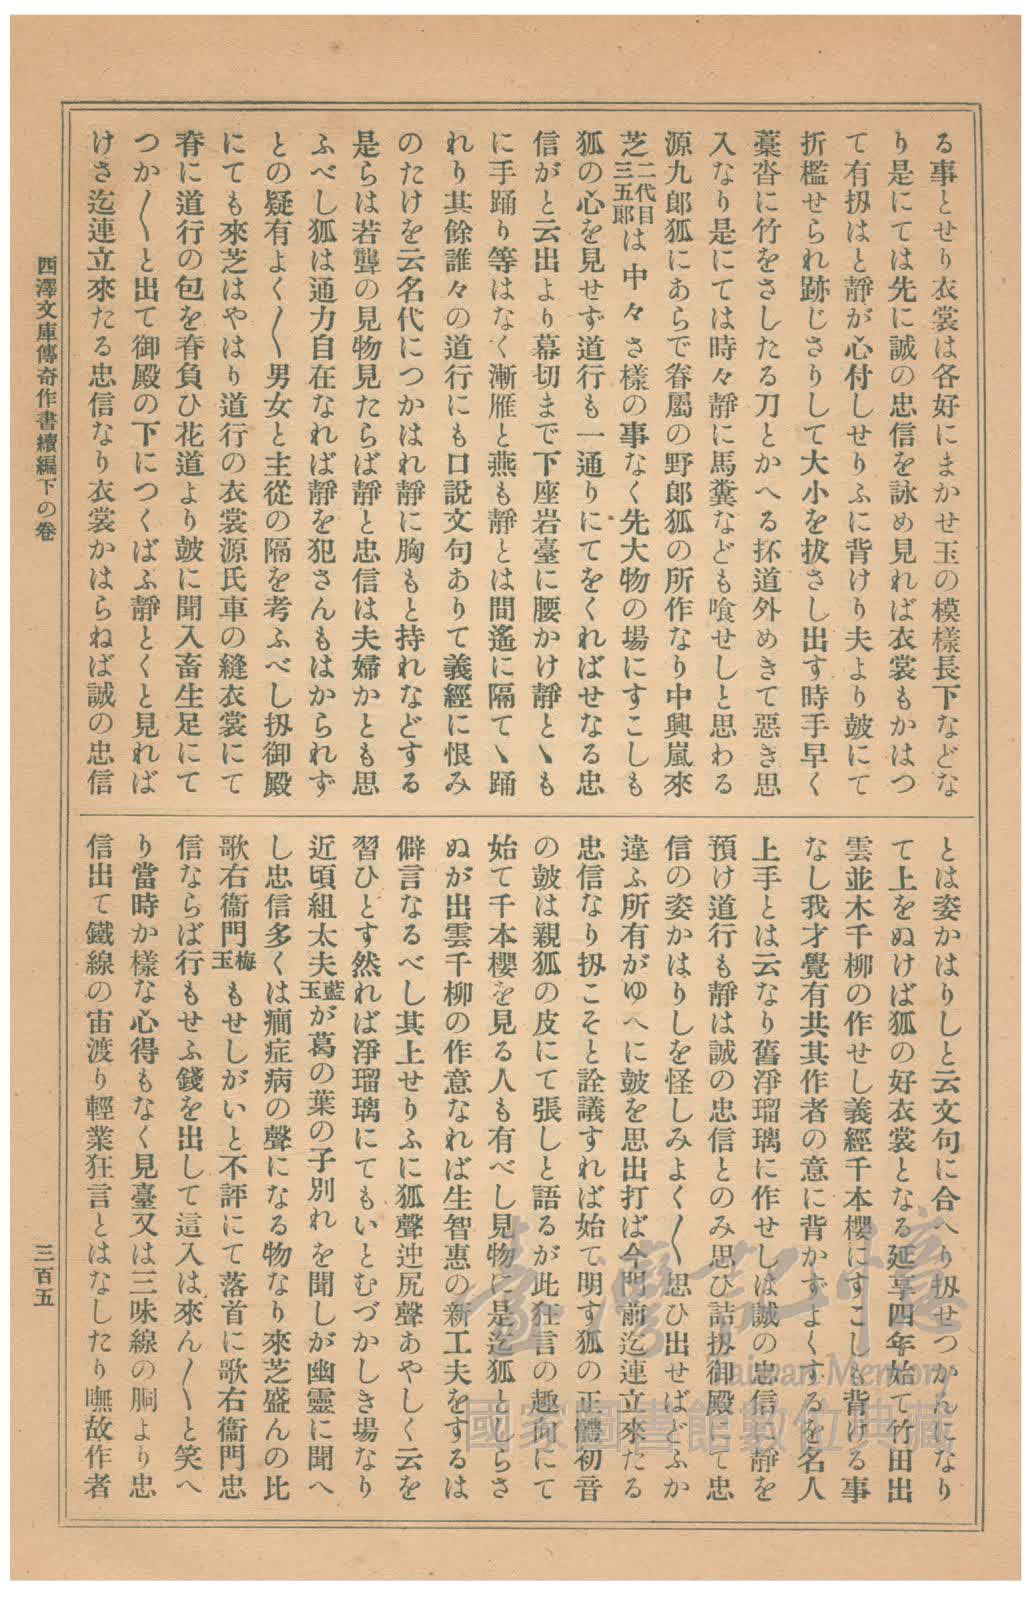 る事とせり衣裳は各好にまかせ玉の模樣長下などな
り是にては先に誠の忠信を詠め見れば衣裳もかはつ
て有扨はと靜が心付しせりふに背けり夫より皷にて
折檻せられ跡じさりして大小を拔さし出す時手早く
藁沓に竹をさしたる刀とかへる抔道外めきて惡き思
入なり是にては時々靜に馬糞なども喰せしと思わる
源九郎狐にあらで眷屬の野郎狐の所作なり中興嵐來
芝二代目三五郎は中々さ樣の事なく先大物の場にすこしも
狐の心を見せず道行も一通りにてをくればせなる忠
信がと云出より幕切まで下座岩臺に腰かけ靜とヽも
に手踊り等はなく漸雁と燕も靜とは間遙に隔てヽ踊
れり其餘誰々の道行にも口說文句ありて義經に恨み
のたけを云名代につかはれ靜に胸もと持れなどする
是らは若聾の見物見たらば靜と忠信は夫婦かとも思
ふべし狐は通力自在なれば靜を犯さんもはかられず
との疑有よく〳〵男女と主從の隔を考ふべし扨御殿
にても來芝はやはり道行の衣裳源氏車の縫衣裳にて
脊に道行の包を脊負ひ花道より皷に聞入畜生足にて
つか〳〵と出て御殿の下につくばふ靜とくと見れば
けさ迄連立來たる忠信なり衣裳かはらねば誠の忠信
とは姿かはりしと云文句に合へり扨せつかんになり
て上をぬけば狐の好衣裳となる延享四年始て竹田出
雲並木千柳の作せし義經千本櫻にすこしも背ける事
なし我才覺有共其作者の意に背かずよくするを名人
上手とは云なり舊淨瑠璃に作せしは誠の忠信に靜を
預け道行も靜は誠の忠信とのみ思ひ詰扨御殿にて忠
信の姿かはりしを怪しみよく〳〵思ひ出せばどふか
違ふ所有がゆへに皷を思出打ば今門前迄連立來たる
忠信なり扨こそと詮議すれば始て明す狐の正體初音
の皷は親狐の皮にて張しと語るが此狂言の趣向にて
始て千本櫻を見る人も有べし見物に是迄狐としらさ
ぬが出雲千柳の作意なれば生智惠の新工夫をするは
僻言なるべし其上せりふに狐聲迚尻聲あやしく云を
習ひとす然れば淨瑠璃にてもいとむづかしき場なり
近頃組太夫藍玉が葛の葉の子別れを聞しが幽靈に聞へ
し忠信多くは癇症病の聲になる物なり來芝盛んの比
歌右衞門梅玉もせしがいと不評にて落首に歌右衞門忠
信ならば行もせふ錢を出して這入は來ん〳〵と笑へ
り當時か樣な心得もなく見臺又は三味線の胴より忠
信出て鐵線の宙渡り輕業狂言とはなしたり嘸故作者
西澤文庫傳奇作書續編下の卷
三百五
臺灣記憶
Taiwan Memory
國家圖書館數位典藏